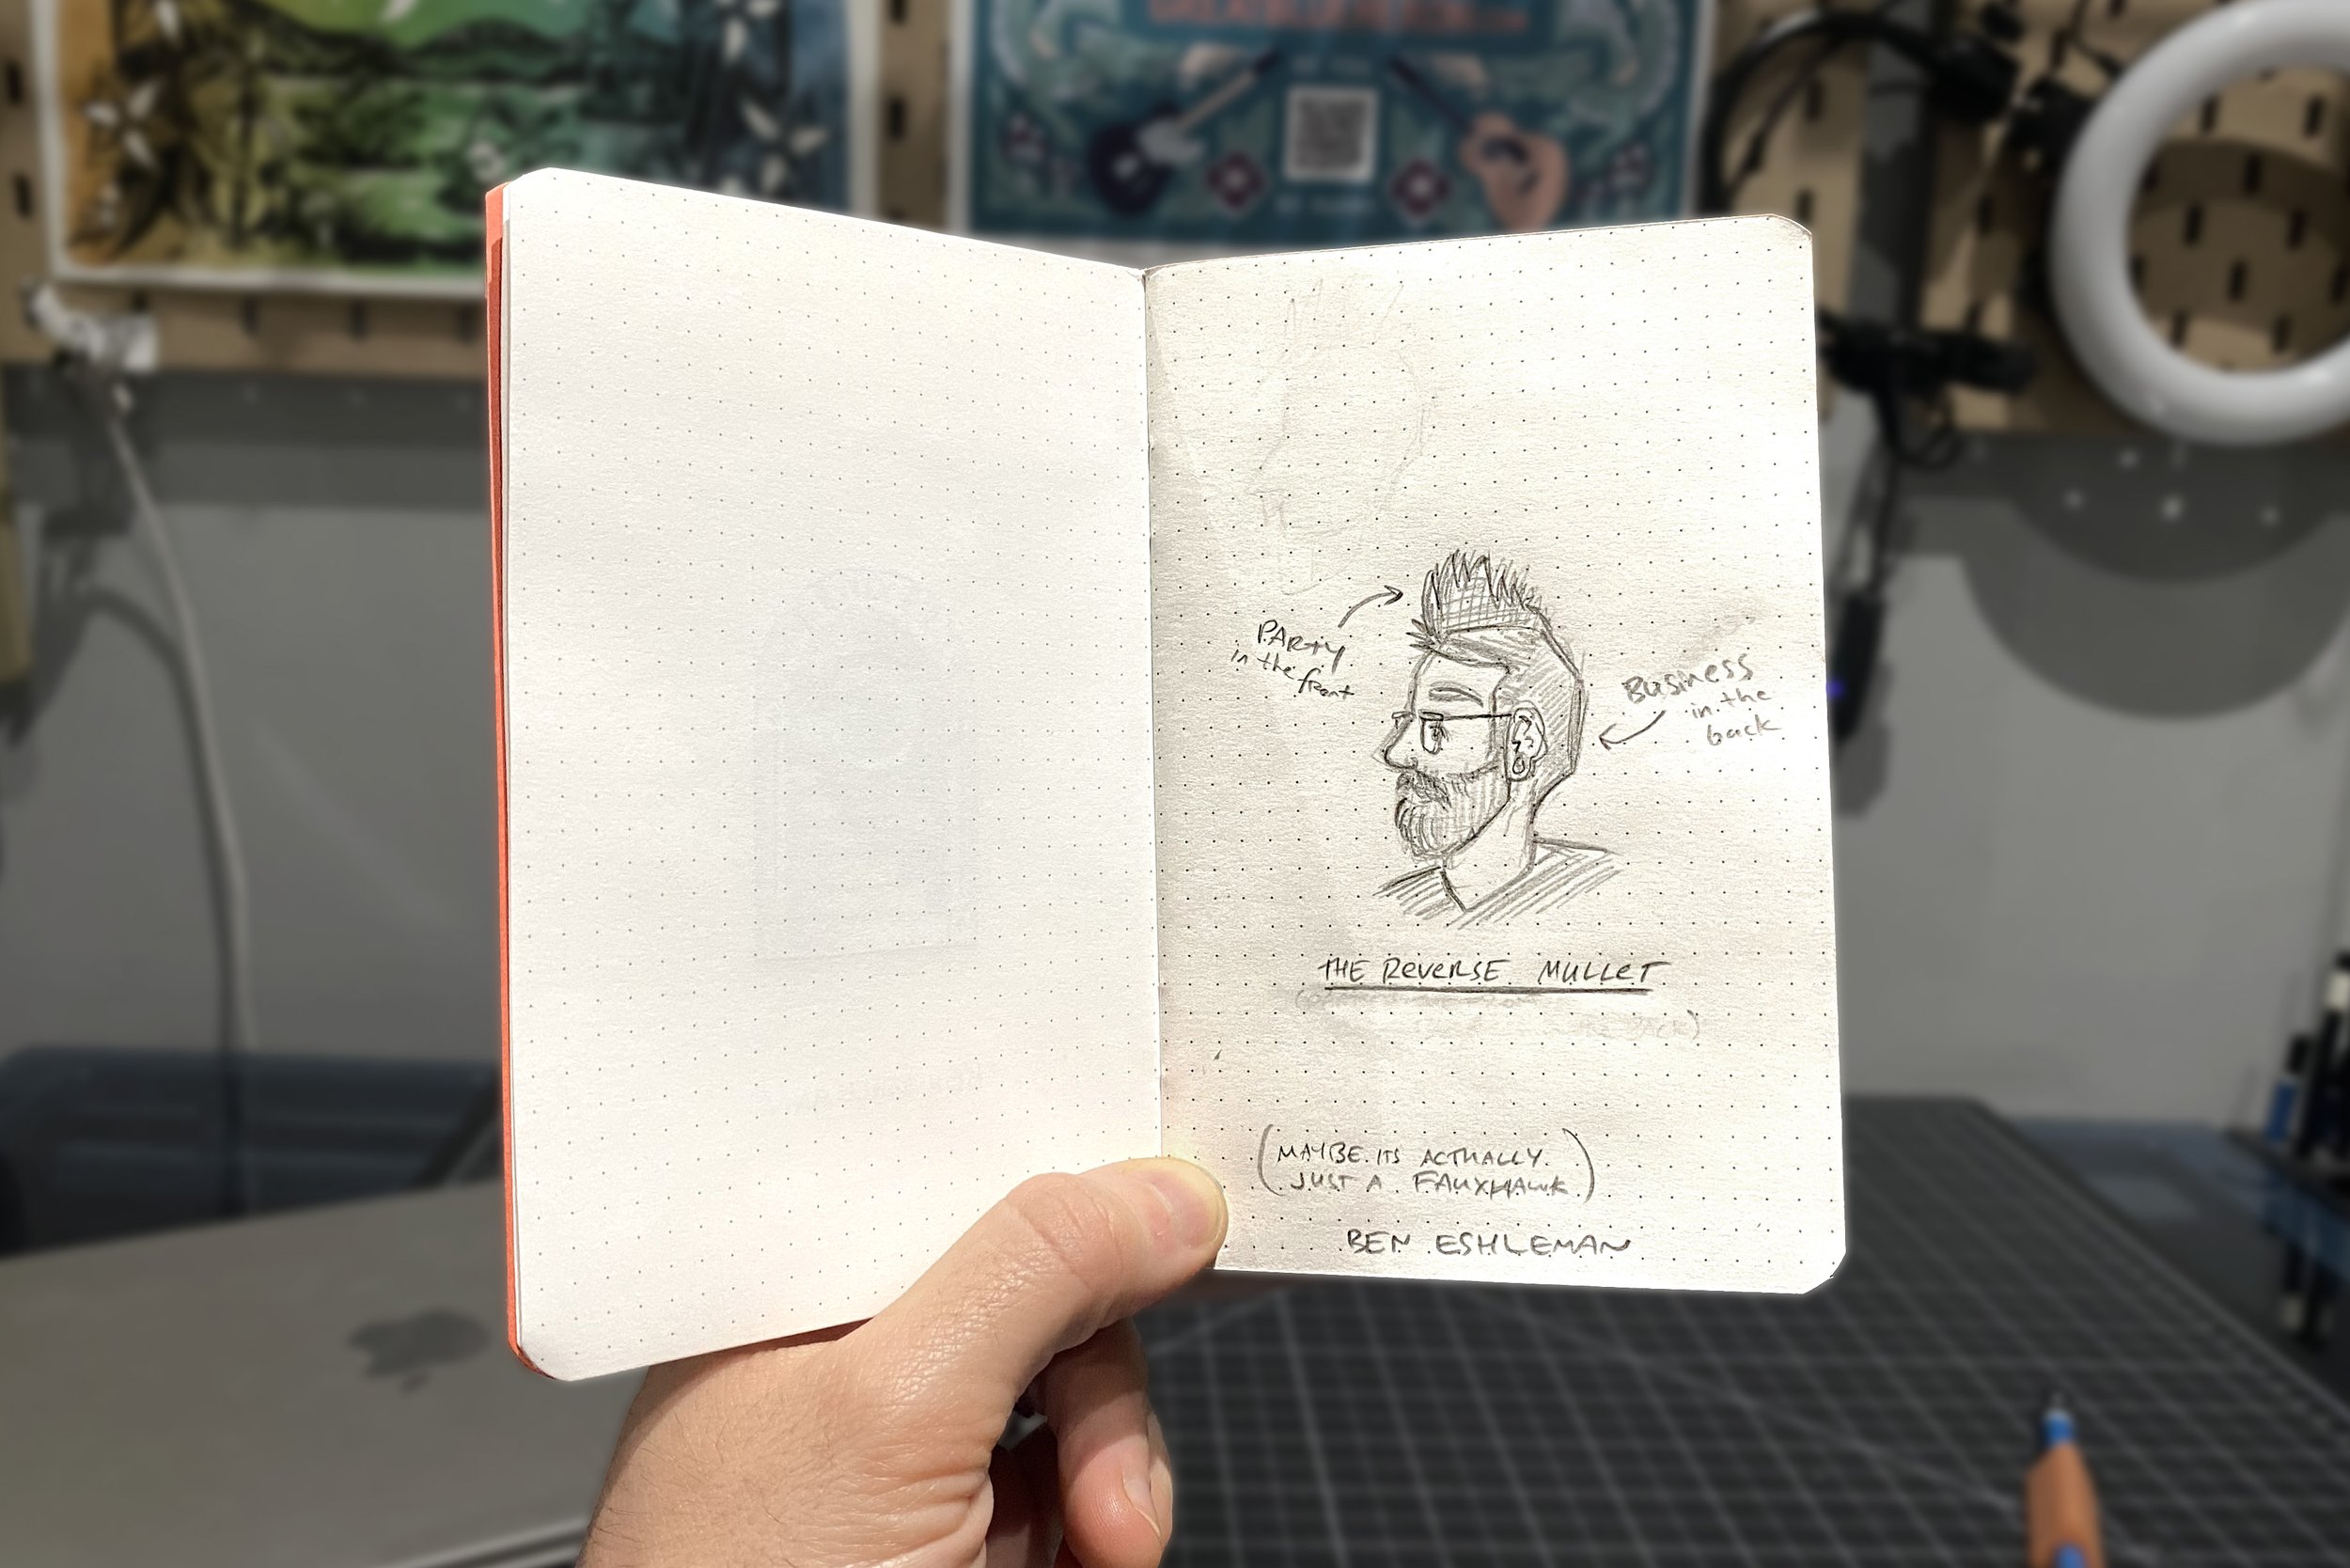 PARTY
in the
front
Business
in the
back
THE REVERSE MULLET
BACK)
(MAYBE ITS ACTUALLY
JUST A FAUXHAWK)
BEN ESHLEMAN